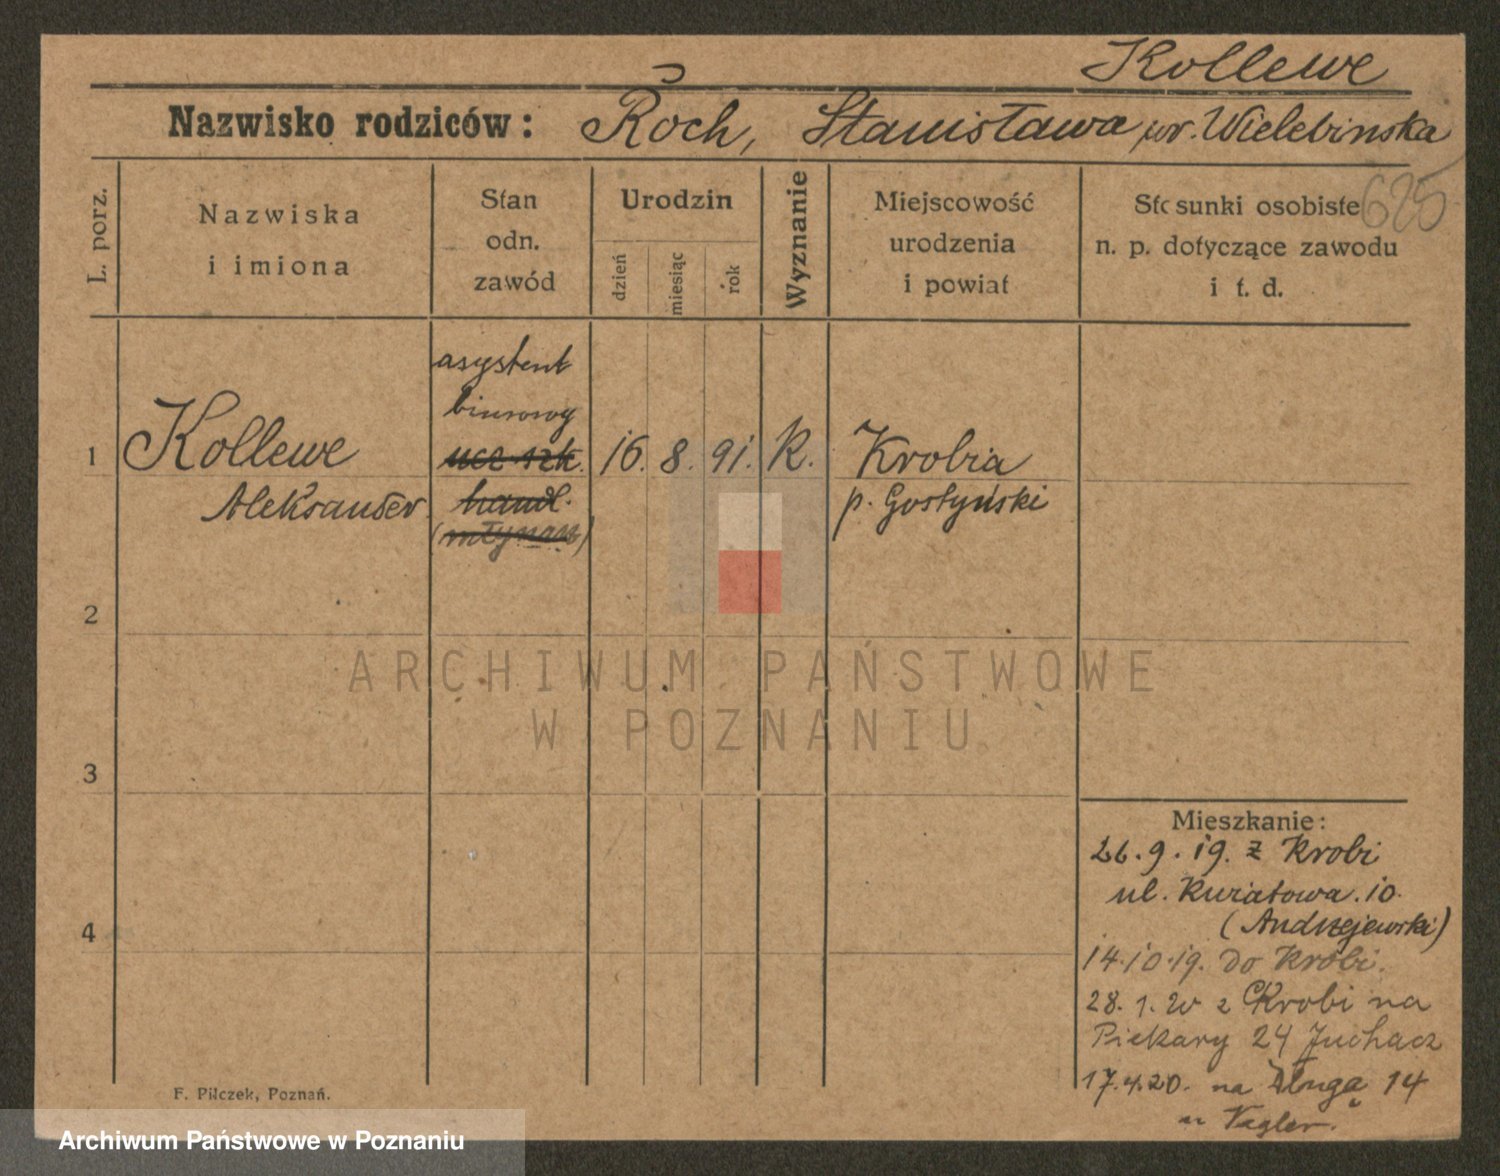 Kollewe
Nazwisko rodziców: Roch, Stanisława ur. Wielebinska
625
L. porz.
Nazwiska
i imiona
Stan
odn.
zawód
Urodzin
dzień
miesiąc
rok
Wyznanie
Miejscowość
urodzenia
i powiat
Stosunki osobiste
n. p. dotyczące zawodu
i t. d.
asystent
biurowy
1 Kollewe ucz. szk. 16. 8. 91. K. Krobia
Aleksander handl. p. Gostyński
(młynarz)
2
ARCHIWUM PAŃSTWOWE
W POZNANIU
3
4
Mieszkanie:
26.9.19. z Krobi
ul. Kwiatowa. 10.
(Andrzejewski)
14.10.19. do Krobi.
28.1.20 z Krobi na
Piekary 24 Juchacz
17.4.20. na Długą 14
Vagler.
F. Pilczek, Poznań.
Archiwum Państwowe w Poznaniu